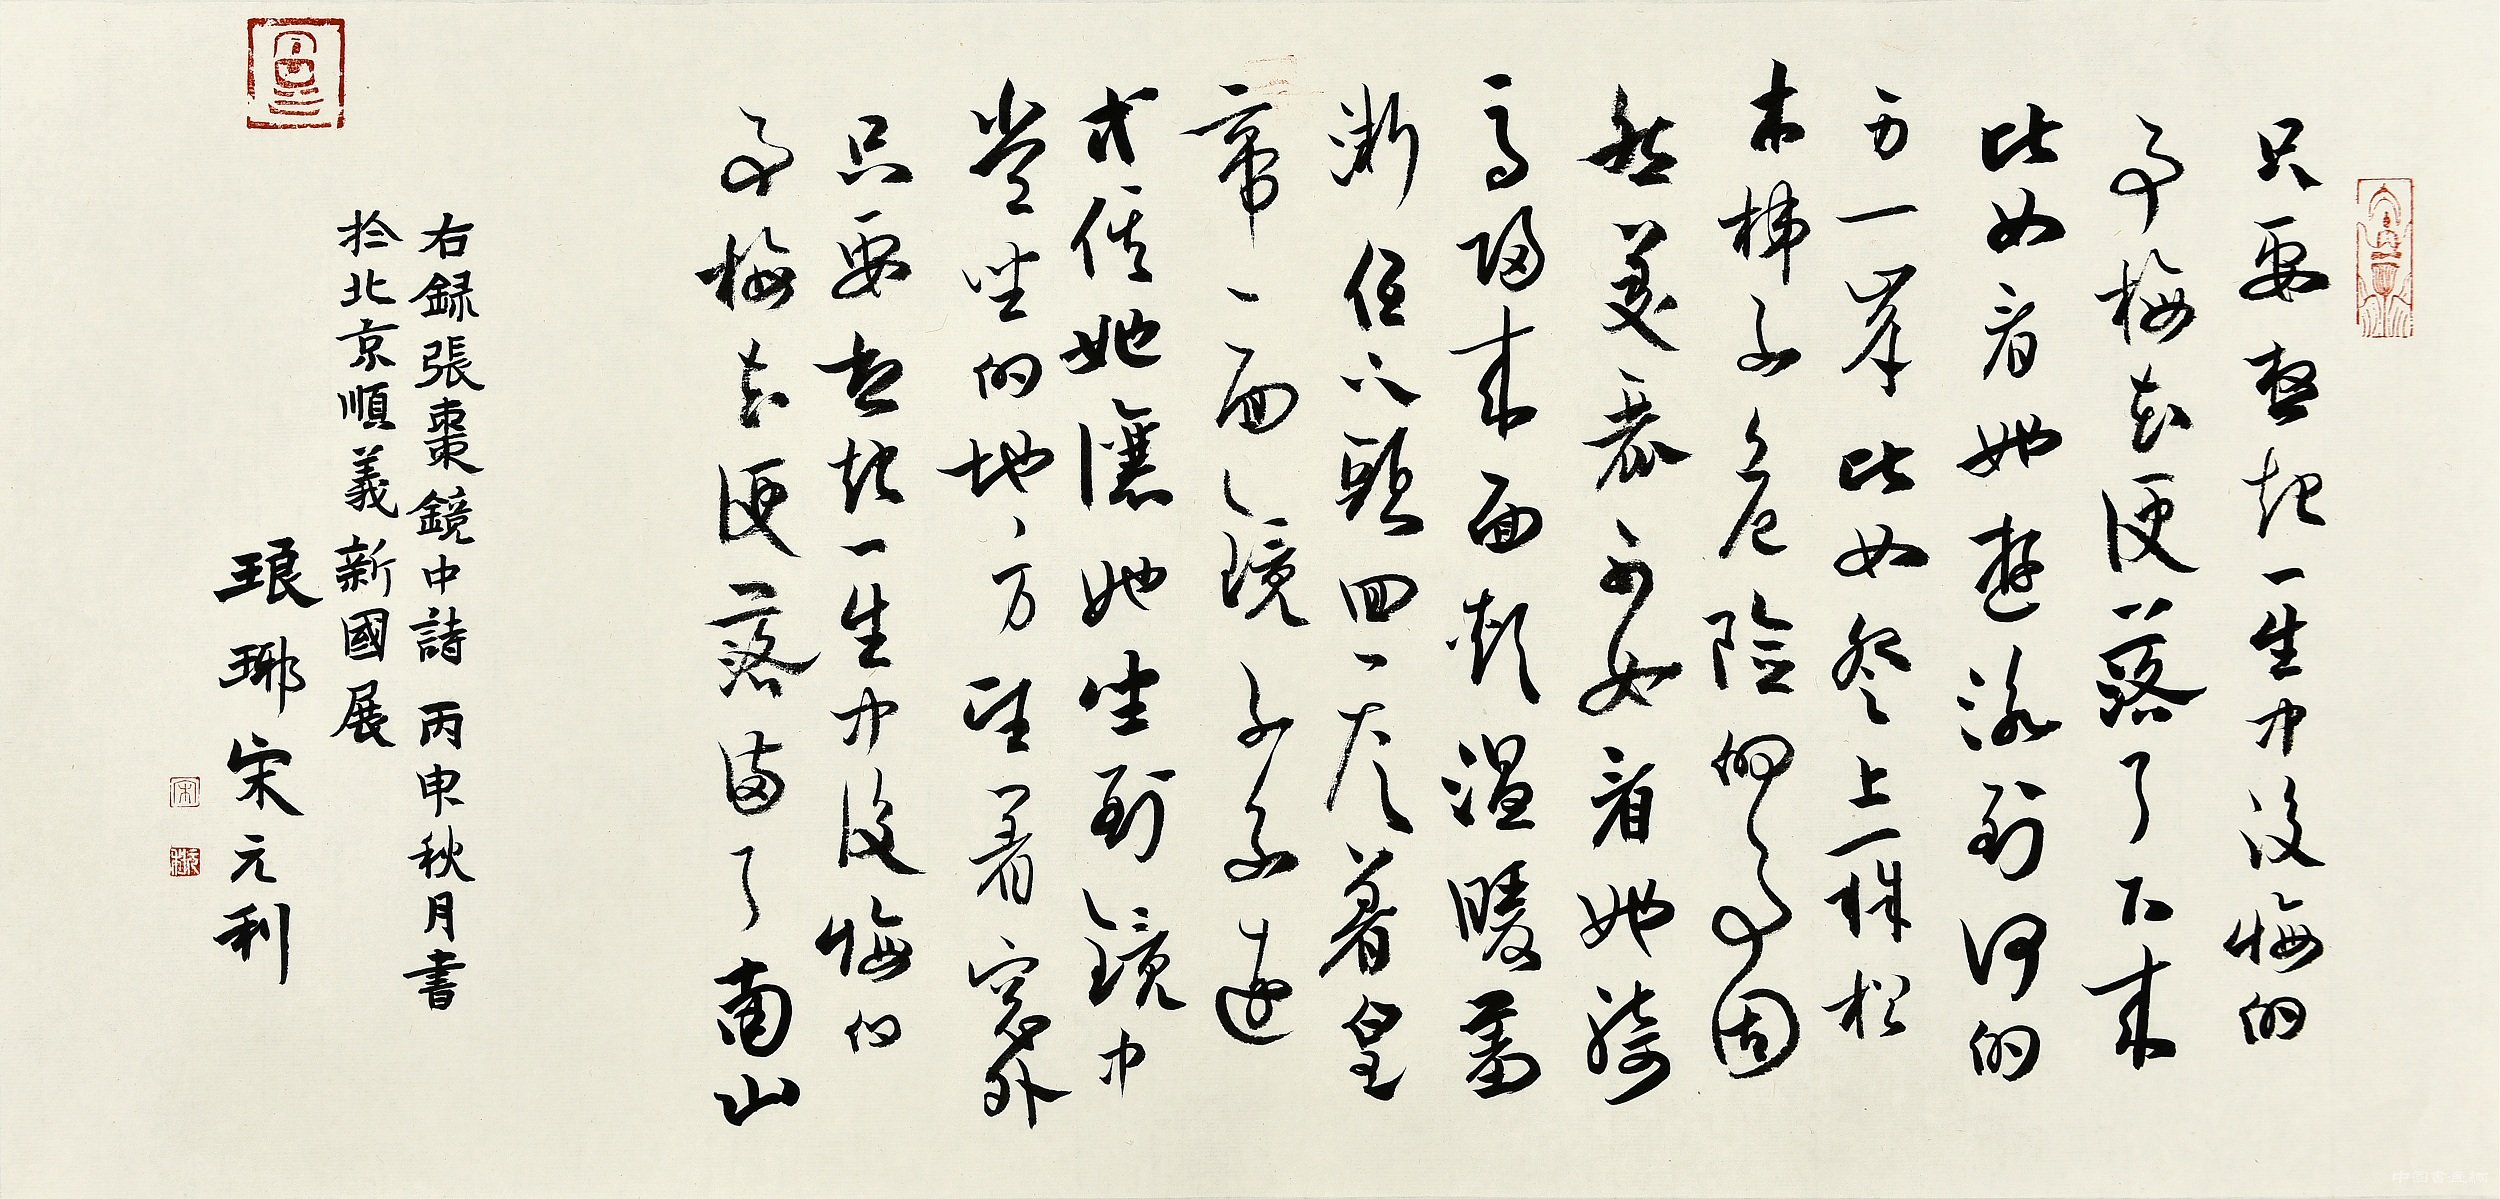 只要想起一生中後悔的
事梅花便落了下来
比如看她遊泳到河的
另一岸比如登上一株松
木梯子危險的事固
然美麗不如看她騎
馬歸来面頰温暖羞
慚低下頭回答着皇
帝一面鏡子永遠
等候她讓她坐到鏡中
常坐的地方望着窗外
只要想起一生中後悔的
事梅花便落滿了南山
右録張棗鏡中詩 丙申秋月書
於北京順義新國展
琅琊宋元利
宋